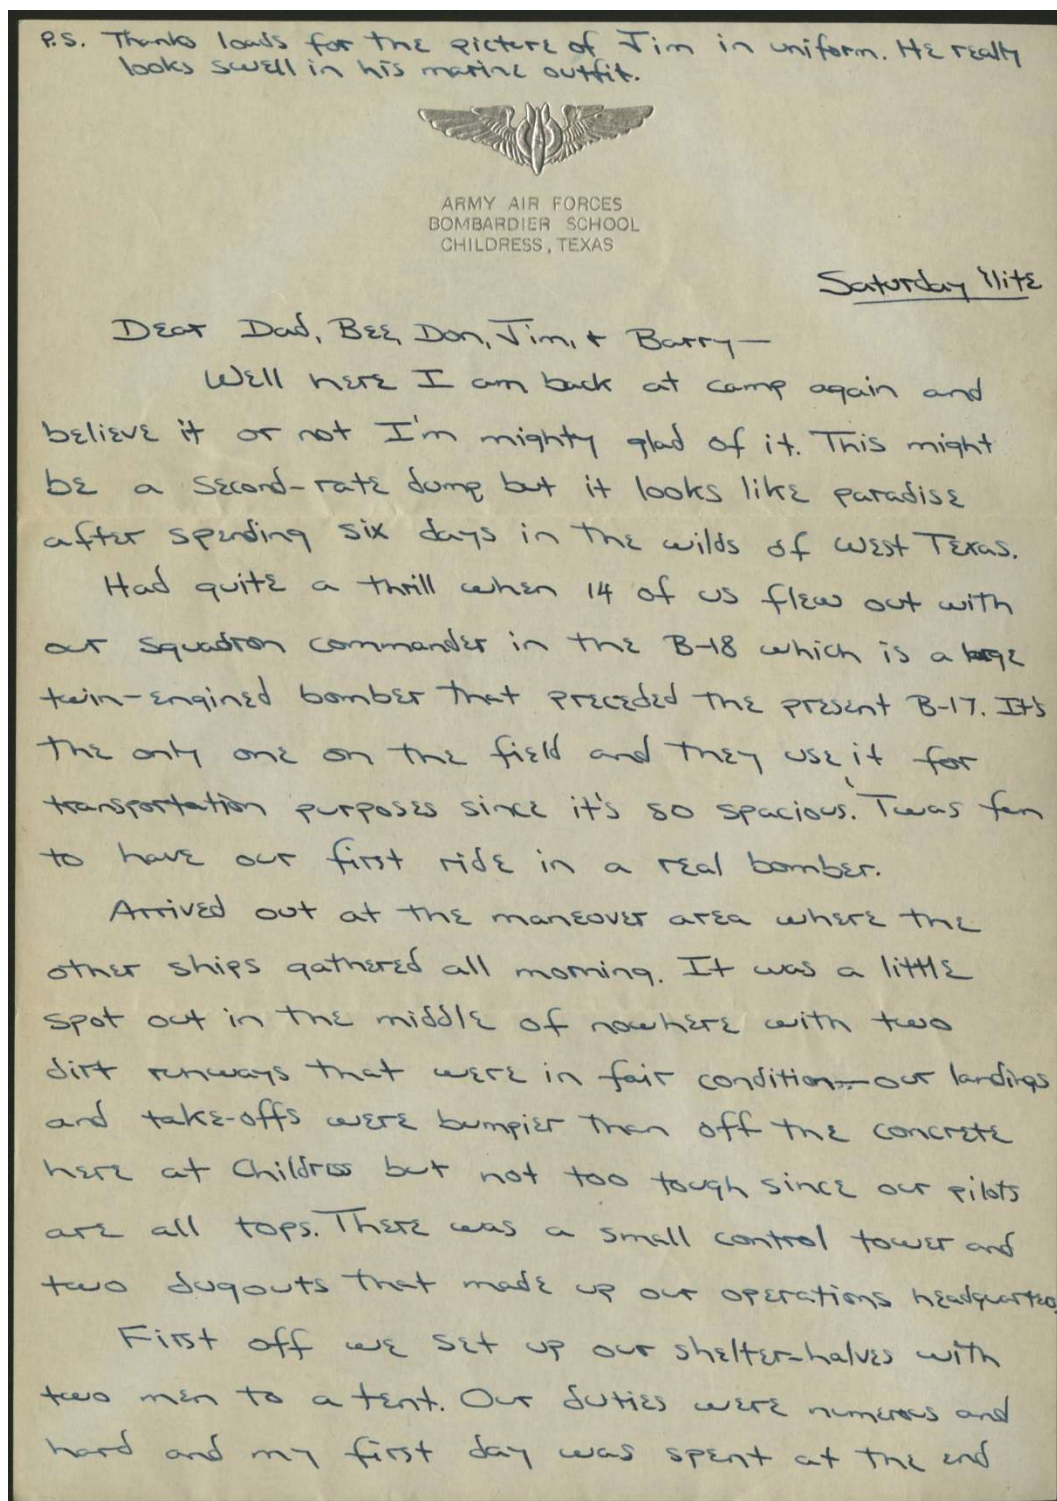 P.S. Thanks loads for the picture of Jim in uniform. He really
looks swell in his marine outfit.
ARMY AIR FORCES
BOMBARDIER SCHOOL
CHILDRESS, TEXAS
Saturday Nite
Dear Dad, Bee, Don, Jim, + Barry—
Well here I am back at camp again and
believe it or not I'm mighty glad of it. This might
be a second-rate dump but it looks like paradise
after spending six days in the wilds of West Texas.
Had quite a thrill when 14 of us flew out with
our squadron commander in the B-18 which is a large
twin-engined bomber that preceded the present B-17. It's
the only one on the field and they use it for
transportation purposes since it's so spacious. 'Twas fun
to have our first ride in a real bomber.
Arrived out at the maneover area where the
other ships gathered all morning. It was a little
spot out in the middle of nowhere with two
dirt runways that were in fair condition—our landings
and take-offs were bumpier than off the concrete
here at Childress but not too tough since our pilots
are all tops. There was a small control tower and
two dugouts that made up our operations headquarters.
First off we set up our shelter-halves with
two men to a tent. Our duties were numerous and
hard and my first day was spent at the end